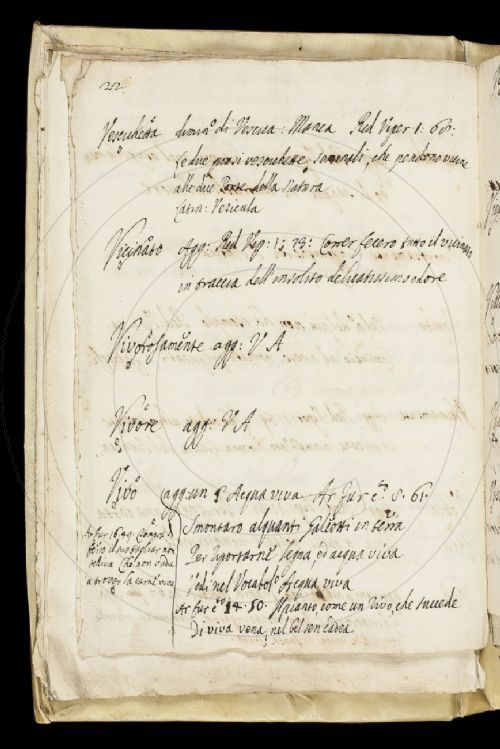 22.
Vescichetta dimin.º di Vescica: Manca Red Viper 1. 66.
Le due vescichette seminali, che pendono
alle due Porte della Natura
Latin: Vesicula
Vicinato Agg: Red Vip: 1: 73: Correr fecero tutto il vicinato
in traccia dell'insolito delicatissimo odore
Vigorosamente agg: V A
Vigore agg: V A
Vivo agg: un § Acqua viva Ar fur cº 8. 61.
Smontaro alquanti Galeotti in terra
Per riportarne legna, ed acqua viva
Vedi nel Vocabolº Acqua viva
Ar fur cº 14. 50. pianto come un Rivo, che succede
Di viva vena, nel bel sen cadea
Ar fur
viva Che non vada
a trovar la carne viva